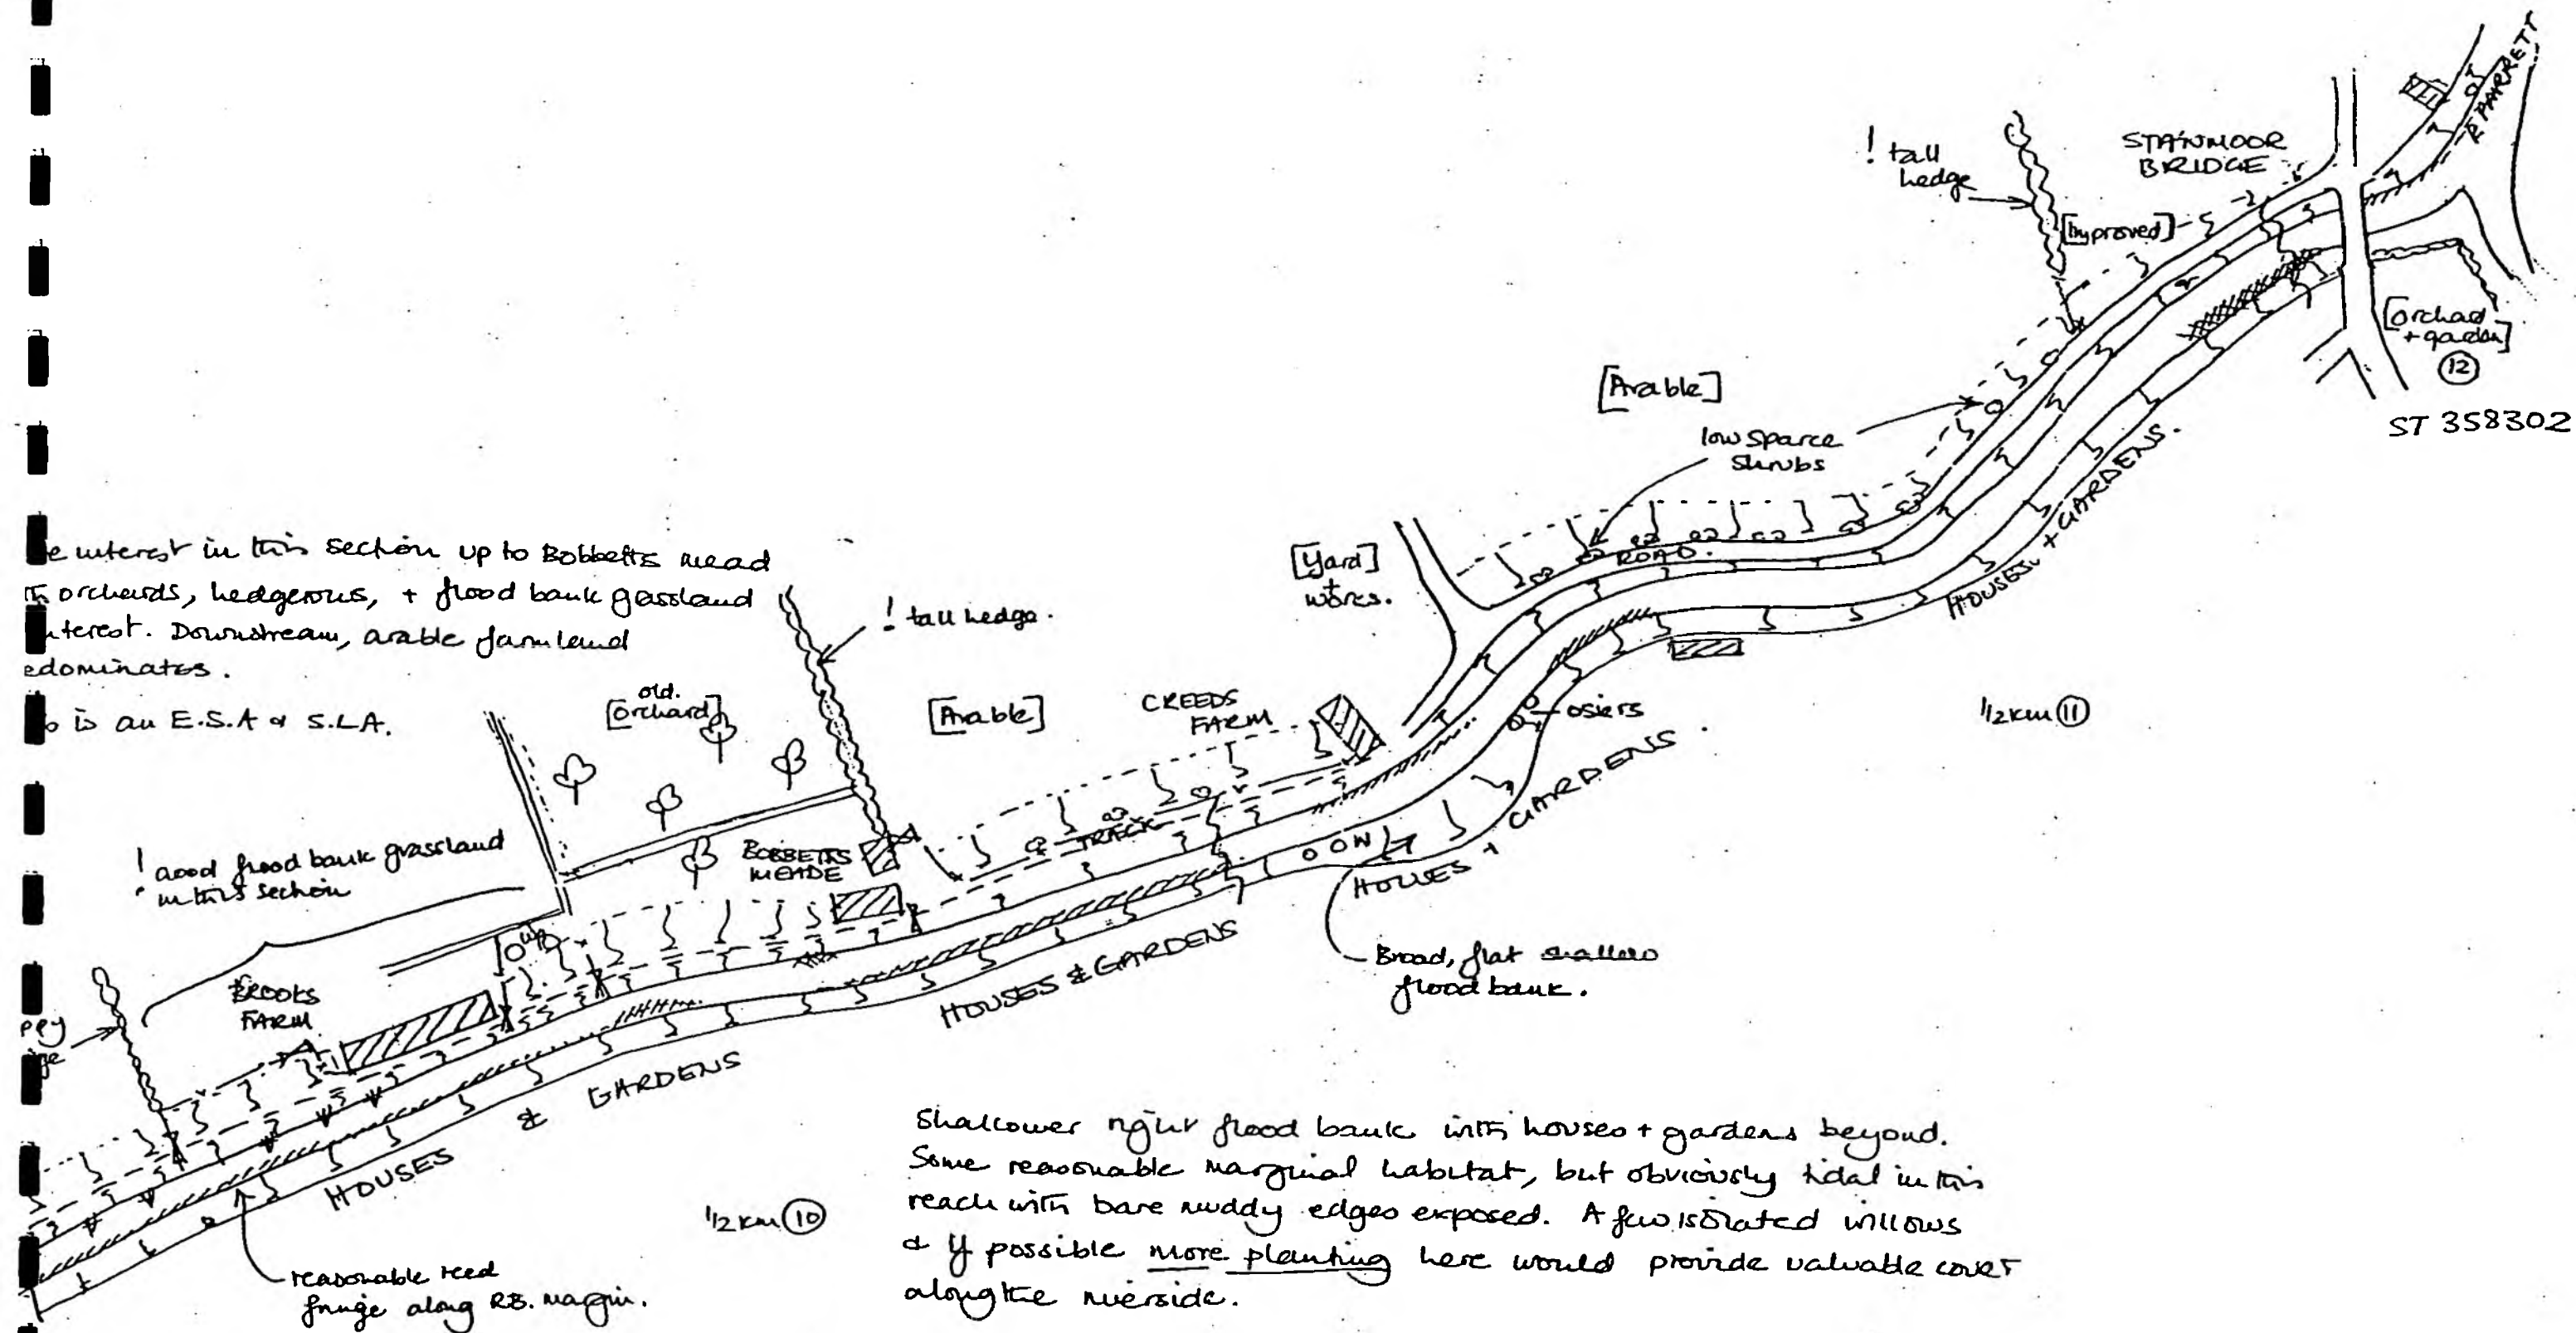 R PARRETT
! tall
hedge
STANMOOR
BRIDGE
[Improved]
[Orchad
+ garden]
(12)
ST 358302
[Arable]
low sparce
shrubs
ROAD.
HOUSES + GARDENS.
[Yard]
+
works.
e interest in this section up to Bobbetts mead
orchards, hedgerows, + flood bank grassland
nterest. Downstream, arable farmland
edominates.
is an E.S.A & S.L.A.
! tall hedge.
old.
[orchard]
[Arable]
CREEDS
FARM
osiers
1/2 km (11)
! good flood bank grassland
in this section
BOBBETTS
MEADE
TRACK
W
HOUSES + GARDENS
HOUSES & GARDENS
Broad, flat
flood bank.
BROOKS
FARM
ppy
ge
HOUSES & GARDENS
1/2 km (10)
reasonable reed
fringe along RB. margin.
Shallower right flood bank with houses + gardens beyond.
Some reasonable marginal habitat, but obviously tidal in this
reach with bare muddy edges exposed. A few isolated willows
& if possible more planting here would provide valuable cover
along the riverside.